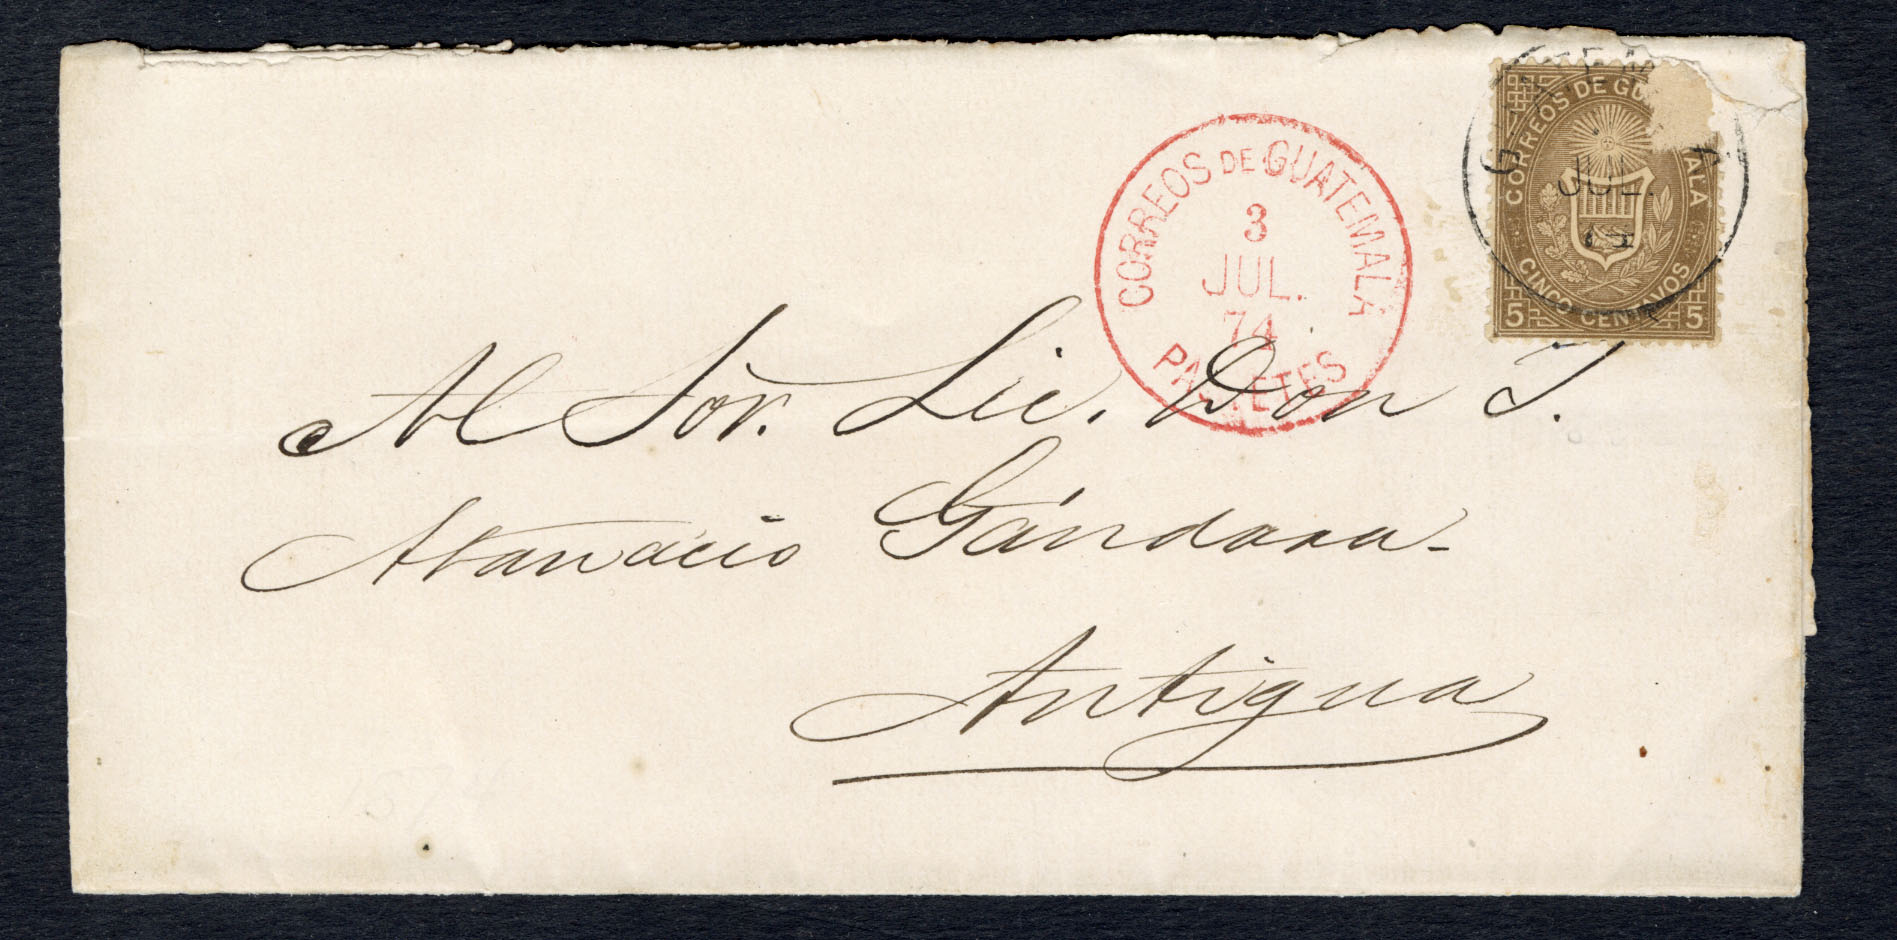 CORREOS DE GUATEMALA
3
JUL.
74
PAQUETES
CORREOS DE GU ALA
CINCO CENTAVOS
5 5
JUL.
Al Sor. Lic. Don J.
Atanacio Gándara-
Antigua